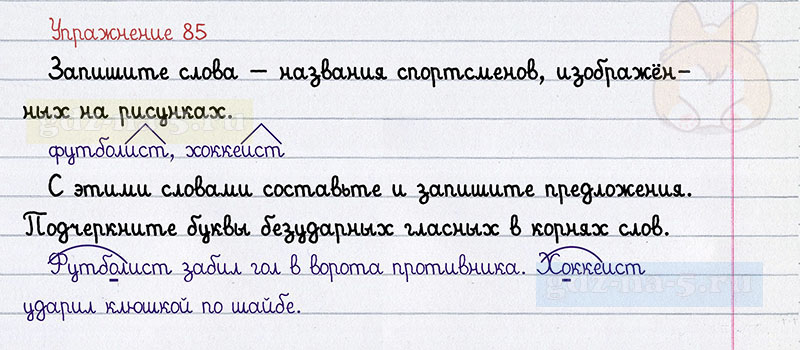 Упражнение 85
Запишите слова – названия спортсменов, изображён-
ных на рисунках.
футболист, хоккеист
С этими словами составьте и запишите предложения.
Подчеркните буквы безударных гласных в корнях слов.
Футболист забил гол в ворота противника. Хоккеист
ударил клюшкой по шайбе.
gdz-na-5.ru
gdz-na-5.ru